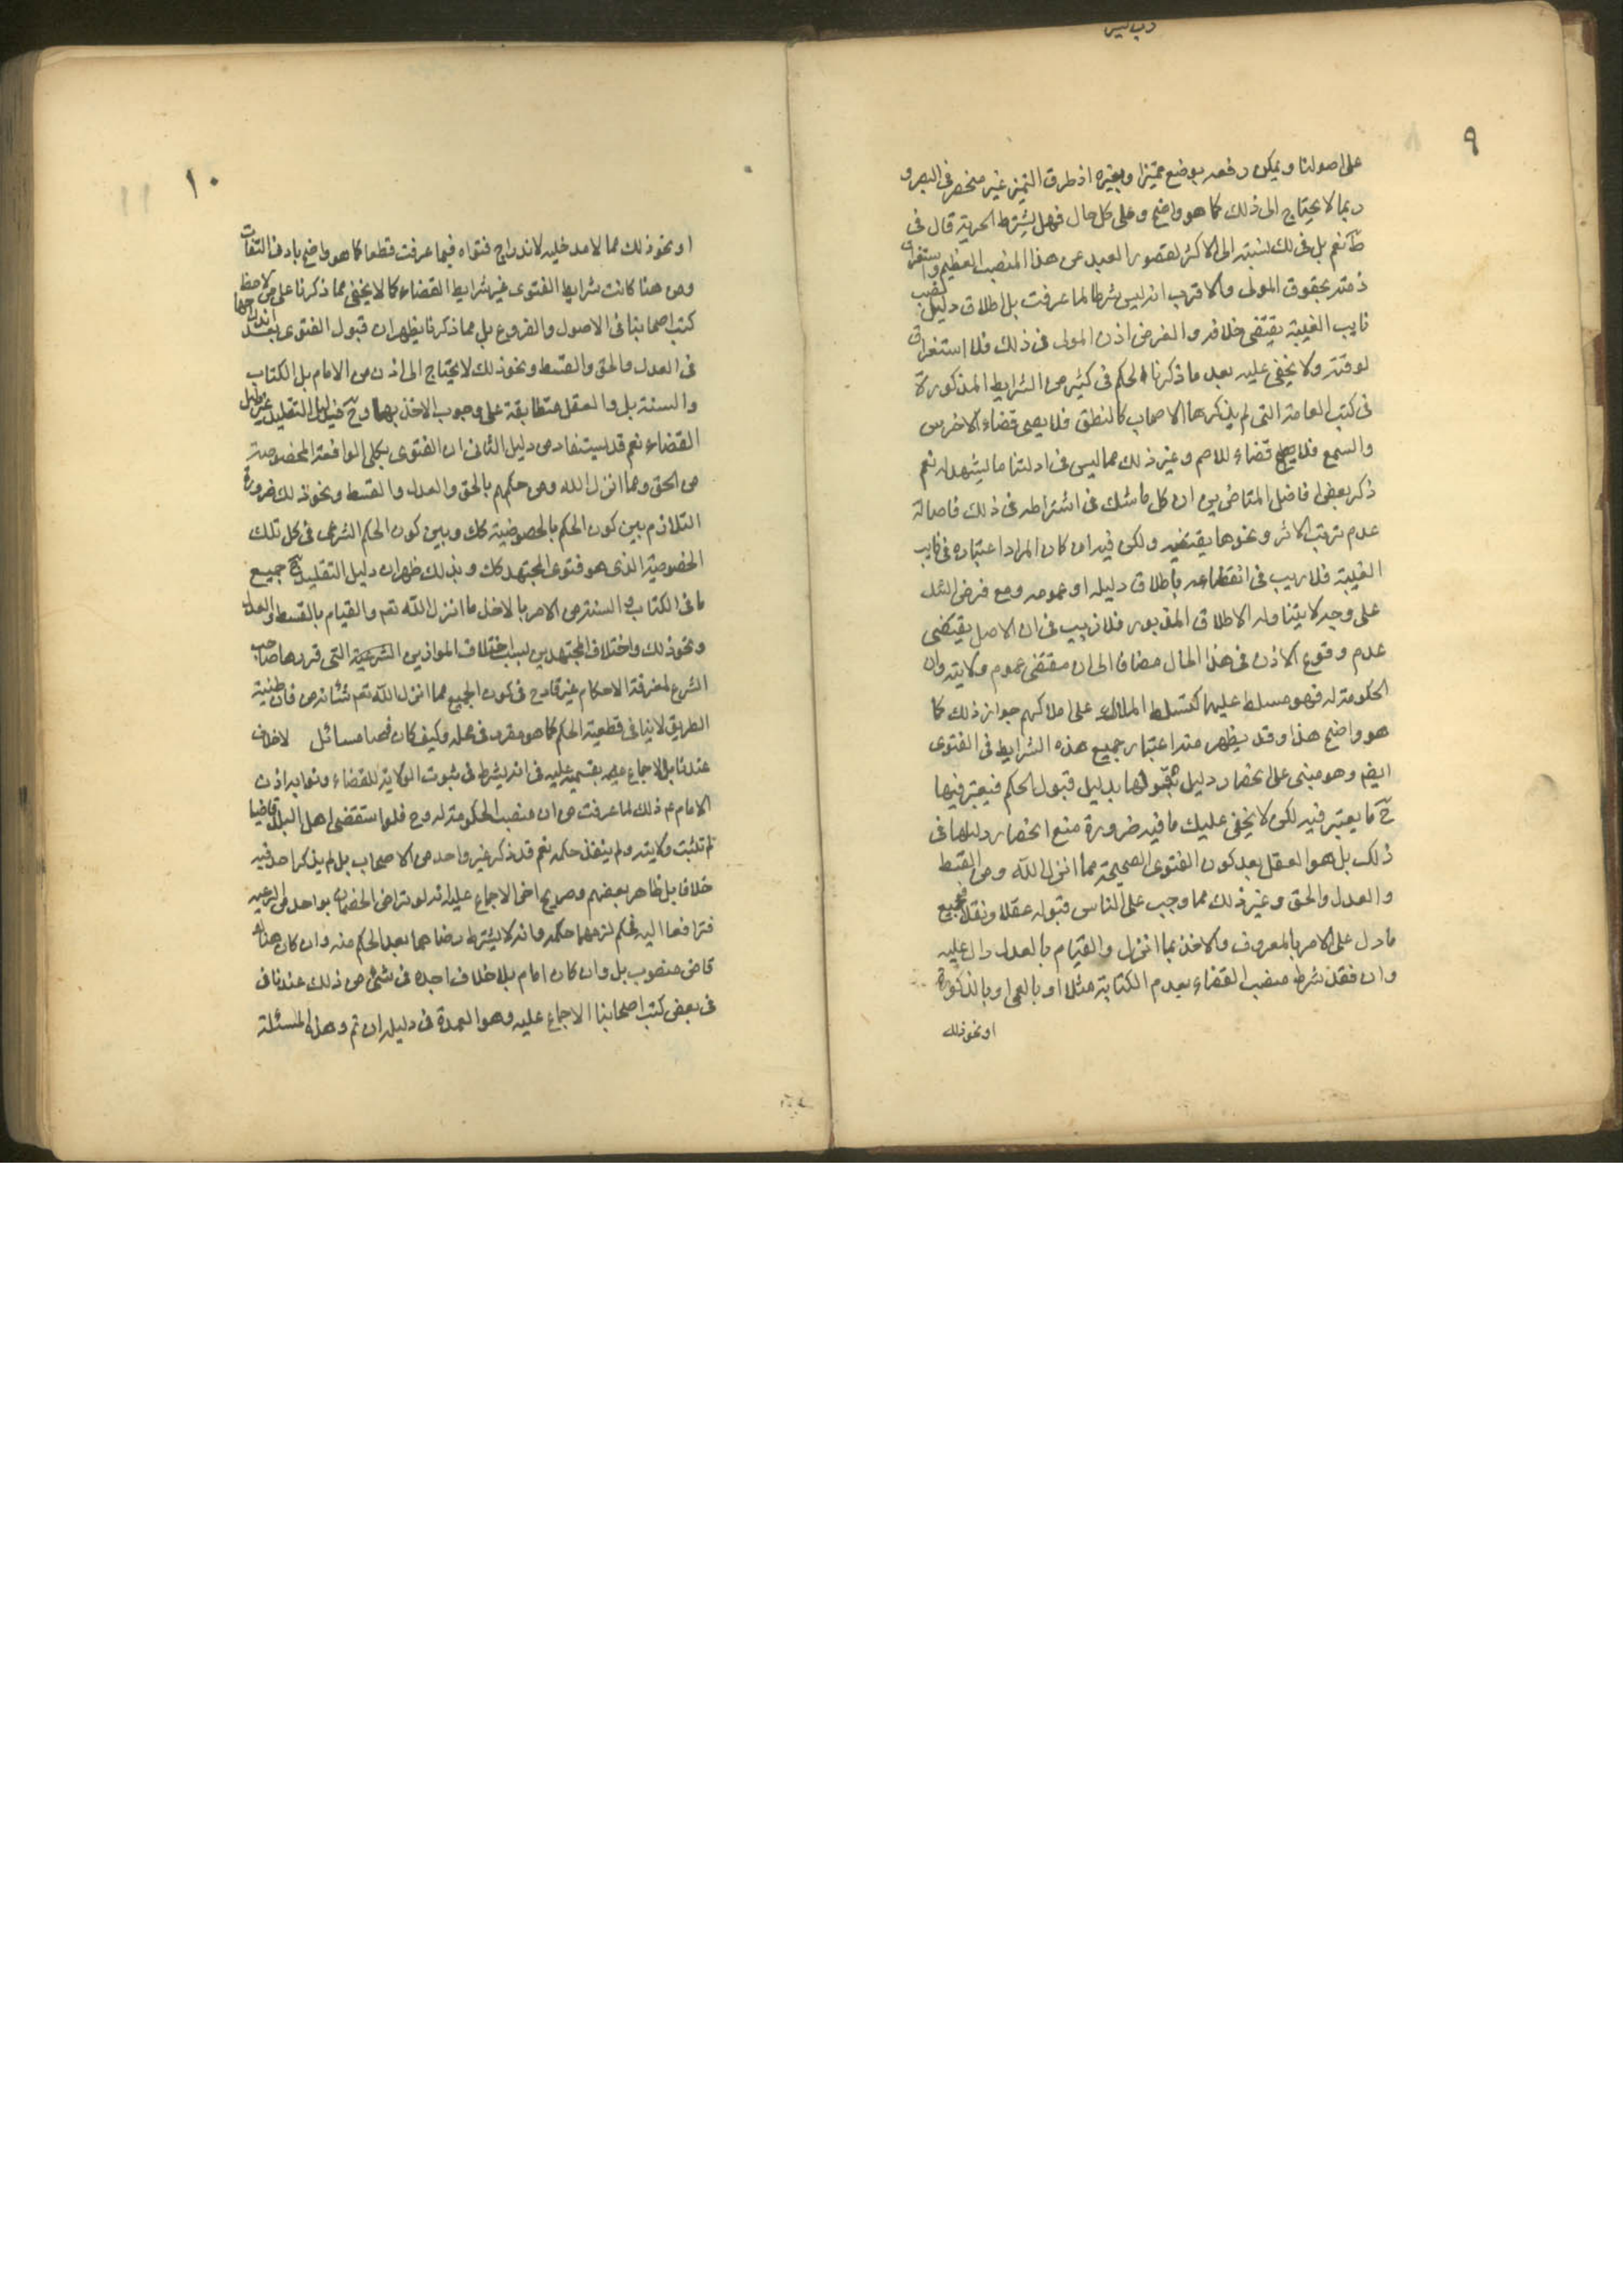 ٩
على اصولنا ويمكن دفعه بوضع مميزا وبغيره اذ طرق التميز غير منحصر فى البصر و
ربما لا يحتاج الى ذلك كما هو واضح وعلى كل حال فهل يشترط الحرية قال فى
ط نعم بل فى لك نسبته الى الاكثر لقصور العبد عن هذا المنصب العظيم واستغراق
ذمته بحقوق المولى والاقرب انه ليس شرطا لما عرفت بل اطلاق دليل نصب
نايب الغيبة يقتضى خلافه والفرض اذن المولى فى ذلك فلا استغراق
لوقته ولا يخفى عليه بعد ما ذكرنا الحكم فى كثير من الشرايط المذكورة
فى كتب العامة التى لم يذكرها الاصحاب كالنطق فلا يصح قضاء الاخرس
والسمع فلا يصح قضاء للاصم وغير ذلك مما ليس فى ادلتنا ما يشهد له نعم
ذكر بعض افاضل المتاخرين ان كل ما شك فى اشتراطه فى ذلك فاصالة
عدم ترتب الاثر ونحوها يقتضيه ولكن فيه ان كان المراد اعتباره فى نايب
الغيبة فلا ريب فى انقطاعه باطلاق دليله او عمومه ومع فرض الشك
على وجه لا يتناوله الاطلاق المذبور فلا ريب فى ان الاصل يقتضى
عدم وقوع الاذن فى هذا الحال مضافا الى ان مقتضى عموم ولايته وان
الحكومة له فهو مسلط عليها كتسلط الملاك على املاكهم جواز ذلك كما
هو واضح هذا وقد يظهر منه اعتبار جميع هذه الشرايط فى الفتوى
ايضا وهو مبنى على انحصار دليل قبولها بدليل قبول الحكم فيعتبر فيها
ح ما يعتبر فيه لكن لا يخفى عليك ما فيه ضرورة منع انحصار دليلها فى
ذلك بل هو العقل بعد كون الفتوى الصحيحة مما انزل الله ومن القسط
والعدل والحق وغير ذلك مما وجب على الناس قبوله عقلا ونقلا فجميع
ما دل على الامر بالمعروف والاخذ بما انزل والقيام بالعدل دال عليه
وان فقد شرط منصب القضاء بعدم الكتابة مثلا او بالعمى او بالذكورة
او نحو ذلك
١٠
او نحو ذلك مما لا مدخلية لاندراج فتواه فيما عرفت قطعا كما هو واضح بادنى التفات
ومن هنا كانت شرايط الفتوى غير شرايط القضاء كما لا يخفى مما ذكرنا على من لاحظ
كتب اصحابنا فى الاصول والفروع بل مما ذكرنا يظهر ان قبول الفتوى بعد اندراجها
فى العدل والحق والقسط ونحو ذلك لا يحتاج الى اذن من الامام بل الكتاب
والسنة بل والعقل متطابقة على وجوب الاخذ بها وح فدليل التقليد غير دليل
القضاء نعم قد يستفاد من دليل الثانى ان الفتوى بكلى الواقعة المخصوصة
من الحق ومما انزل الله ومن حكمهم بالحق والعدل والقسط ونحو ذلك ضرورة
التلازم بين كون الحكم بالخصوصية كك وبين كون الحكم الشرعى فى كل تلك
الخصوصية الذى هو فتوى المجتهد كك وبذلك ظهر ان دليل التقليد ح جميع
ما فى الكتاب والسنة من الامر بالاخذ ما انزل الله تعم والقيام بالقسط والعدل
ونحو ذلك واختلاف المجتهدين بسبب اختلاف الموازين الشرعية التى قررها صاحب
الشرع لمعرفة الاحكام غير قادح فى كون الجميع مما انزل الله تعم شأنه فان ظنية
الطريق لا ينافى قطعية الحكم كما هو مقرر فى محله وكيف كان فهنا مسائل لا خلاف
عندنا بل الاجماع بقسميه عليه فى انه يشترط فى ثبوت الولاية للقضاء وتوابعه اذن
الامام ع ذلك لما عرفت من ان منصب الحكومة له وح فلو استقضى اهل البلد قاضيا
لم تثبت ولايته ولم ينفذ حكمه نعم قد ذكر غير واحد من الاصحاب بل لم يذكر احد فيه
خلافا بل ظاهر بعضهم وصريح اخر الاجماع عليه انه لو تراضى الخصمان بواحد من الرعية
فترافعا اليه فحكم لزمهما حكمه وانه لا يشترط رضاهما بعد الحكم منه وان كان هناك
قاض منصوب بل وان كان امام بلا خلاف اجده فى شئ من ذلك عندنا فى
فى بعض كتب اصحابنا الاجماع عليه وهو العمدة فى دليله ان تم وهذه المسئلة